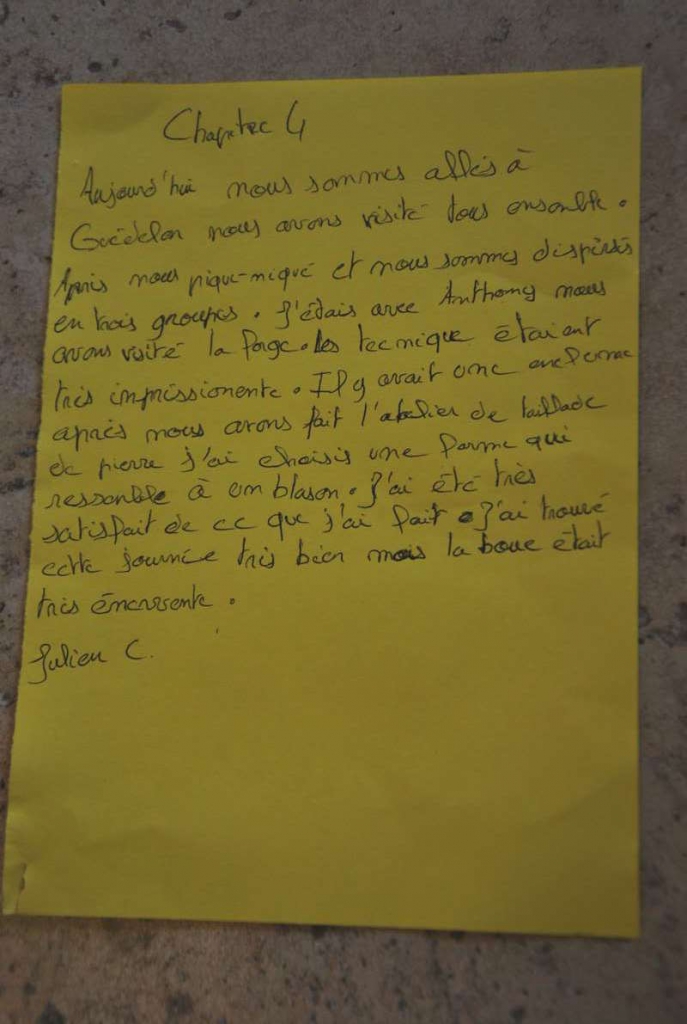 Chapitre 4
Aujourd'hui nous sommes allés à
Guédelon nous avons visité tous ensemble.
Après nous pique-niqué et nous sommes dispersés
en trois groupes. J'étais avec Anthony nous
avons visité la forge. les tecnique étaient
très impréssionente. Il y avait une enclume
après nous avons fait l'atelier de taillade
de pierre j'ai choisis une forme qui
ressemble à un blason. J'ai été très
satisfait de ce que j'ai fait. J'ai trouvé
cette journée très bien mais la boue était
très énervente.
Julien C.